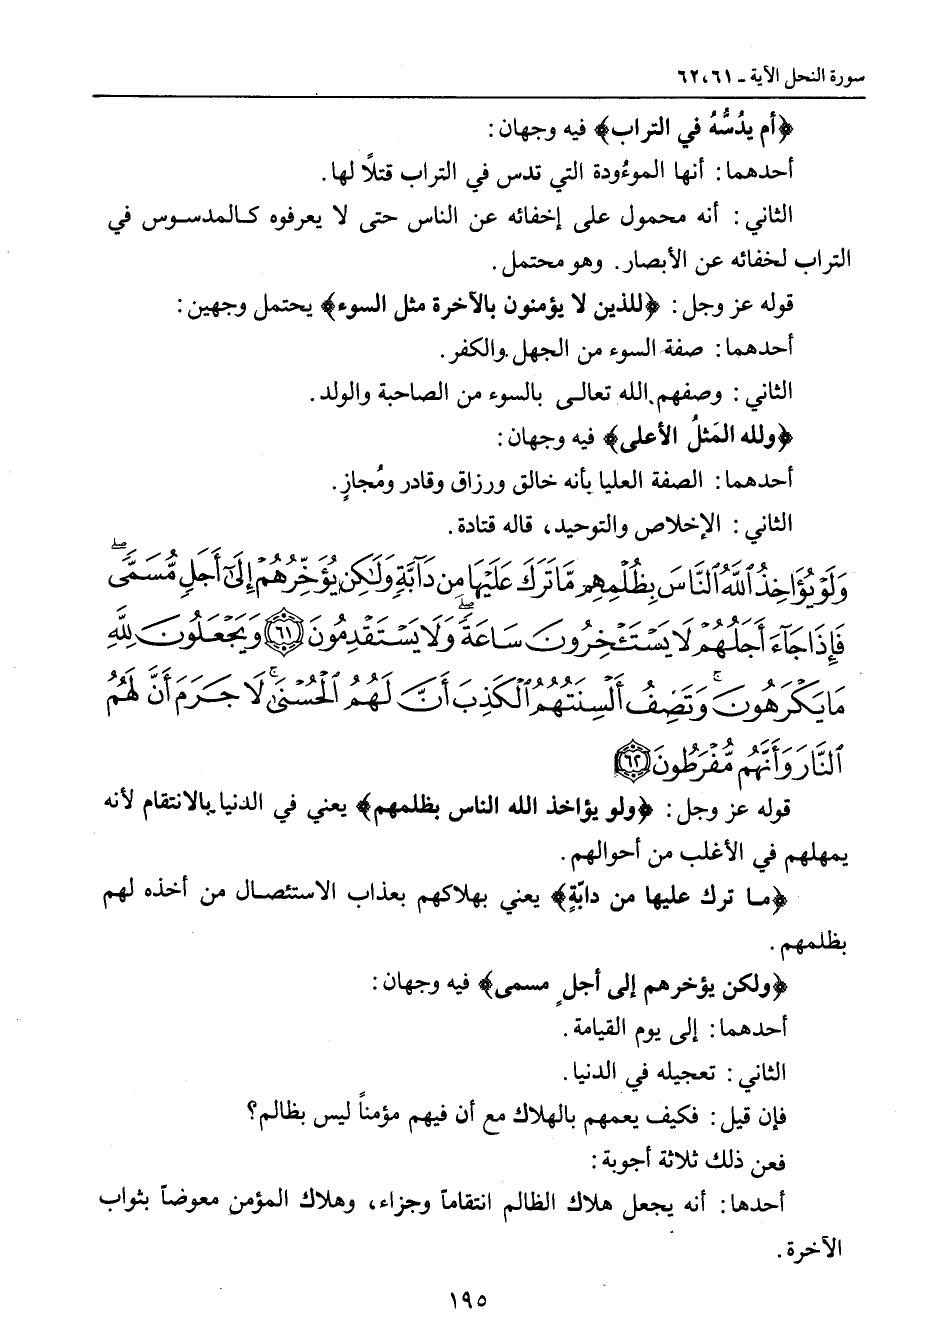 سورة النحل الآية ـ ٦١، ٦٢
﴿أم يدُسُّهُ في التراب﴾ فيه وجهان:
أحدهما: أنها الموءُودة التي تدس في التراب قتلًا لها.
الثاني: أنه محمول على إخفائه عن الناس حتى لا يعرفوه كالمدسوس في
التراب لخفائه عن الأبصار. وهو محتمل.
قوله عز وجل: ﴿للذين لا يؤمنون بالآخرة مثل السوء﴾ يحتمل وجهين:
أحدهما: صفة السوء من الجهل والكفر.
الثاني: وصفهم الله تعالى بالسوء من الصاحبة والولد.
﴿ولله المَثلُ الأعلى﴾ فيه وجهان:
أحدهما: الصفة العليا بأنه خالق ورزاق وقادر ومُجازٍ.
الثاني: الإخلاص والتوحيد، قاله قتادة.
وَلَوْ يُؤَاخِذُ ٱللَّهُ ٱلنَّاسَ بِظُلْمِهِم مَّا تَرَكَ عَلَيْهَا مِن دَآبَّةٍ وَلَٰكِن يُؤَخِّرُهُمْ إِلَىٰٓ أَجَلٍ مُّسَمًّى ۖ
فَإِذَا جَآءَ أَجَلُهُمْ لَا يَسْتَـْٔخِرُونَ سَاعَةً ۖ وَلَا يَسْتَقْدِمُونَ ﴿٦١﴾ وَيَجْعَلُونَ لِلَّهِ
مَا يَكْرَهُونَ ۚ وَتَصِفُ أَلْسِنَتُهُمُ ٱلْكَذِبَ أَنَّ لَهُمُ ٱلْحُسْنَىٰ ۚ لَا جَرَمَ أَنَّ لَهُمُ
ٱلنَّارَ وَأَنَّهُم مُّفْرَطُونَ ﴿٦٢﴾
قوله عز وجل: ﴿ولو يؤاخذ الله الناس بظلمهم﴾ يعني في الدنيا بالانتقام لأنه
يمهلهم في الأغلب من أحوالهم.
﴿ما ترك عليها من دابّةٍ﴾ يعني بهلاكهم بعذاب الاستئصال من أخذه لهم
بظلمهم.
﴿ولكن يؤخرهم إلى أجلٍ مسمى﴾ فيه وجهان:
أحدهما: إلى يوم القيامة.
الثاني: تعجيله في الدنيا.
فإن قيل: فكيف يعمهم بالهلاك مع أن فيهم مؤمناً ليس بظالم؟
فعن ذلك ثلاثة أجوبة:
أحدها: أنه يجعل هلاك الظالم انتقاماً وجزاء، وهلاك المؤمن معوضاً بثواب
الآخرة.
١٩٥